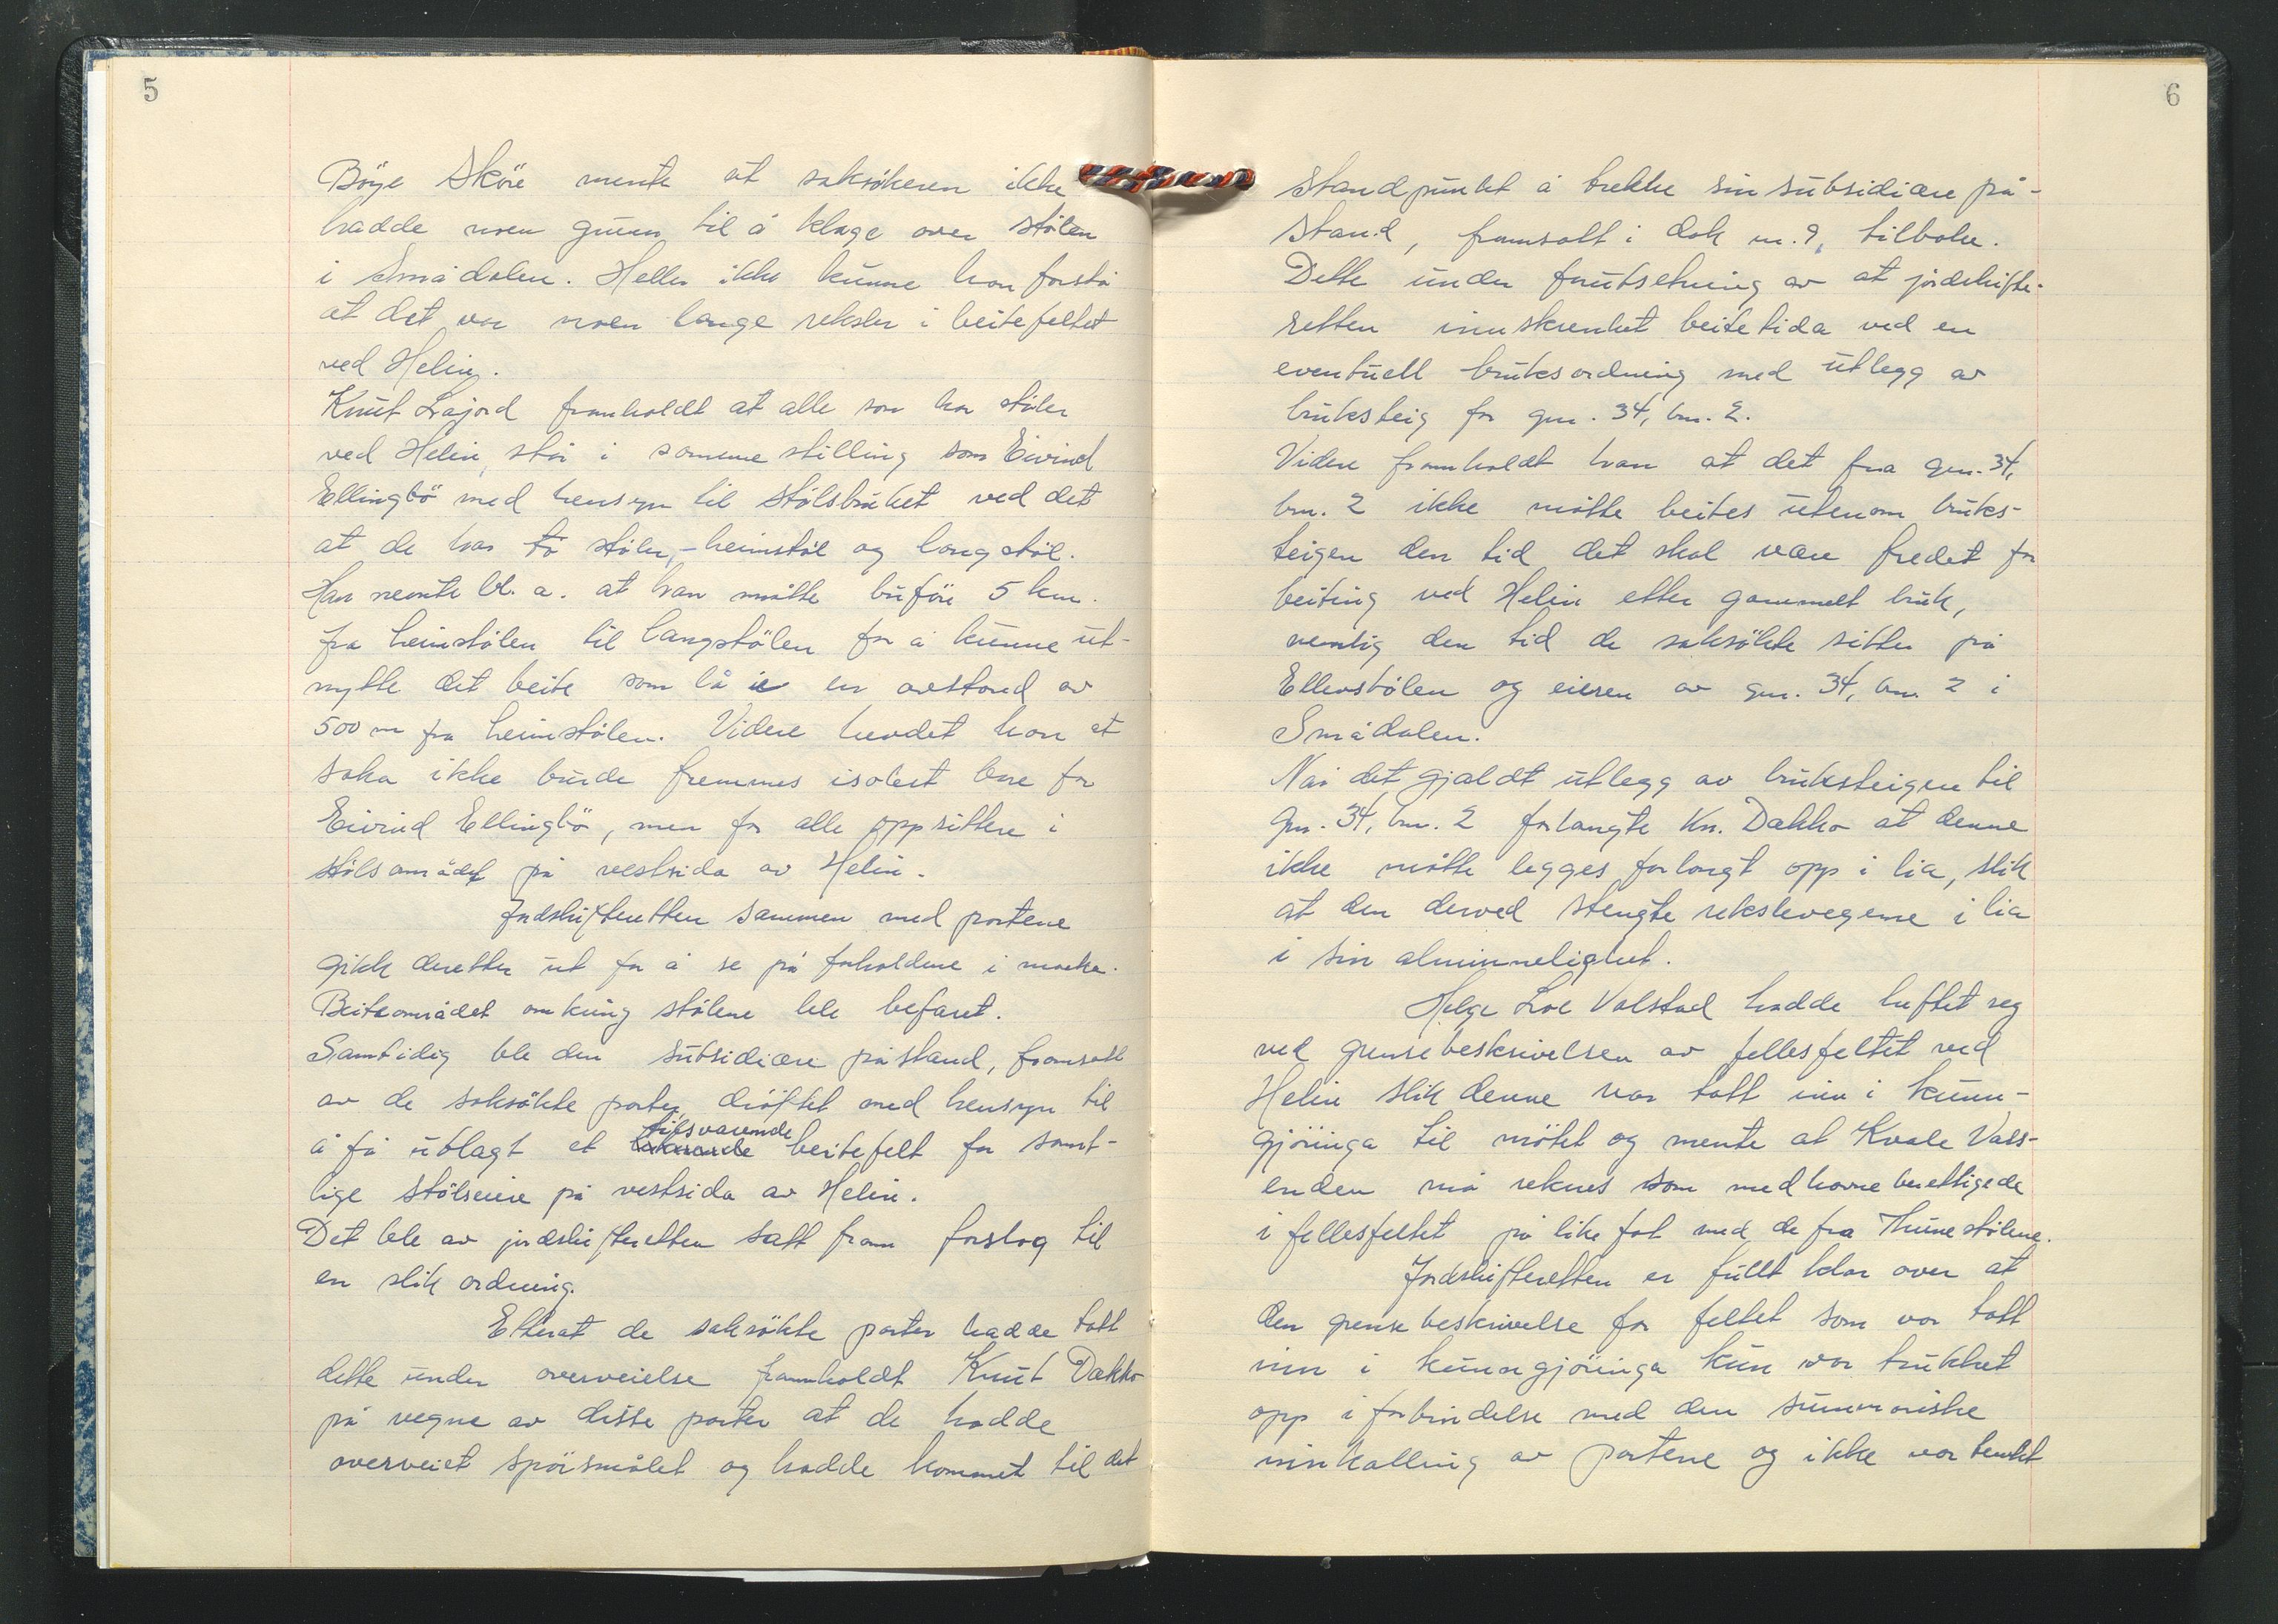 5
Böye Sköre mente at saksökeren ikke
hadde noen grunn til å klage over stölen
i Smådalen. Heller ikke kunne han forstå
at det var noen lange rekster i beitefeltet
ved Helin.
Knut Lajord framholdt at alle som har støler
ved Helin, står i samme stilling som Eivind
Ellingbö med hensyn til stölsbruket ved det
at de har to støler,- heimstöl og langstöl.
Han nemnte bl. a. at han måtte buföre 5 km.
fra heimstölen til langstölen for å kunne ut-
nytte det beite som lå i en avstand av
500 m fra heimstölen. Videre hevdet han at
saka ikke burde fremmes isolert bare for
Eivind Ellingbö, men for alle oppsittere i
stölsområdet på vestsida av Helin.
Jordskifteretten sammen med partene
gikk deretter ut for å se på forholdene i marka.
Beiteområdet omkring stölene ble befaret.
Samtidig ble den subsidiære påstand, framsatt
av de saksökte parter, dröftet med hensyn til
tilsvarende
å få utlagt et beitefelt for samt-
lige stölseiere på vestsida av Helin.
Det ble av jordskifteretten satt fram forslag til
en slik ordning.
Etterat de saksökte parter hadde tatt
dette under overveielse framholdt Knut Dakko
på vegne av disse parter at de hadde
overveiet spörsmålet og hadde kommet til det
6
standpunkt å trekke sin subsidiære på-
stand, framsatt i dok nr. 9, tilbake.
Dette under forutsetning av at jordskifte-
retten innskrenket beitetida ved en
eventuell bruksordning med utlegg av
bruksteig for gnr. 34, bnr. 2.
Videre framholdt han at det fra gnr. 34,
bnr. 2 ikke måtte beites utenom bruks-
teigen den tid det skal være fredet for
beiting ved Helin etter gammelt bruk,
nemlig den tid de saksökte sitter på
Ellenstölen og eieren av gnr. 34, bnr. 2 i
Smådalen.
Når det gjaldt utlegg av bruksteigen til
Gnr. 34, bnr. 2 forlangte Kn. Dakko at denne
ikke måtte legges for langt opp i lia, slik
at den derved stengte rekstevegene i lia
i sin alminnelighet.
Helge Loe Valstad hadde heftet seg
ved grensebeskrivelsen av fellesfeltet ved
Helin slik denne var tatt inn i kunn-
gjöringa til mötet og mente at Kvale Vass-
enden må reknes som medhavneberettigede
i fellesfeltet på like fot med de fra Thunestölene.
Jordskifteretten er fullt klar over at
den grensebeskrivelse for feltet som var tatt
inn i kunngjöringa kun var trukket
opp i forbindelse med den summariske
innkalling av partene og ikke var tenkt